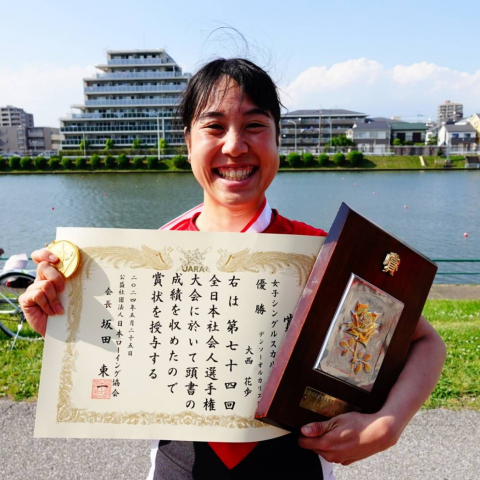 賞
女子シングルスカル
優勝
デンソーオルカリズ
大西花歩
右は第七十四回
全日本社会人選手権
大会に於いて頭書の
成績を収めたので
賞状を授与する
二〇二四年五月二十五日
公益社団法人日本ローイング協会
会長 坂田 東一
JARA